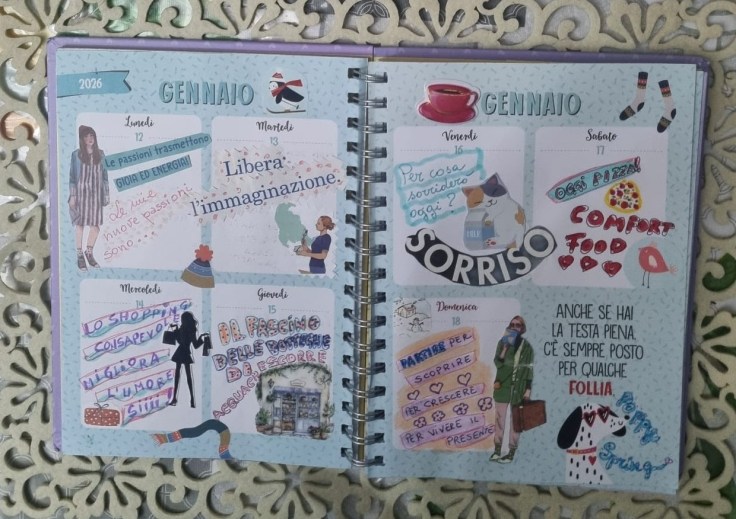 2026
GENNAIO
Lunedì
12
Le passioni trasmettono
GIOIA ED ENERGIA!
le mie
nuove passioni
sono...
Martedì
13
Libera
l'immaginazione
Mercoledì
14
LO SHOPPING
CONSAPEVOLE
MIGLIORA
L'UMORE
SIIII!
Giovedì
15
IL FASCINO
DELLE BOTTEGHE
DI ESCORRE
ACQUACI
GENNAIO
Venerdì
16
Per cosa
sorriderò
oggi?
SORRISO
Sabato
17
OGGI PIZZA!
COMFORT
FOOD
Domenica
18
PARTIRE PER
SCOPRIRE
PER CRESCERE
PER VIVERE IL
PRESENTE
ANCHE SE HAI
LA TESTA PIENA,
C'È SEMPRE POSTO
PER QUALCHE
FOLLIA.
Happy
Spring